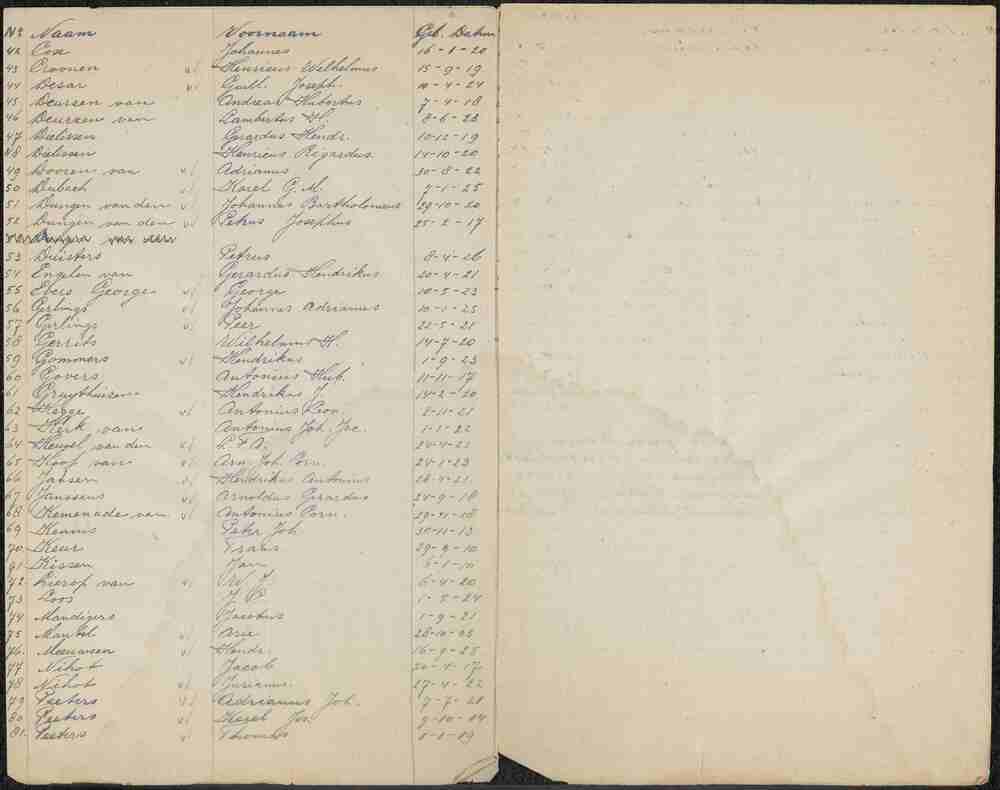 No Naam Voornaam Geb. Datum
42 Cox Johannes 16-1-20
43 Croonen v/ Henricus Wilhelmus 15-9-19
44 Desar v/ Guill. Joseph. 10-4-24
45 Deursen van Andreas Hubertus 7-4-18
46 Deursen van Lambertus H. 8-6-23
47 Dielissen Gerardus Hendr. 10-12-19
48 Dielissen Henricus Rigardus 14-10-20
49 Dooren van v/ Adrianus 30-8-22
50 Dubach v/ Karel G. M. 7-1-25
51 Dungen van den v/ Johannes Bartholomeus 29-10-20
52 Dungen van den v/ Petrus Josephus 25-2-17
53 Duisters Petrus 8-4-26
54 Engelen van Gerardus Hendrikus 20-4-21
55 Ebers George v/ George 10-5-23
56 Gerlings v/ Johannes Adrianus 10-1-25
57 Gerlings v/ Peer 22-5-21
58 Gerrits Wilhelmus H. 14-7-20
59 Gommers v/ Hendrikus 1-9-23
60 Govers Antonius Hub. 11-11-17
61 Gruythuisen Hendrikus J. 14-2-20
62 Hegge v/ Antonius Leon. 2-11-21
63 Herk van Antonius Joh. Jac. 1-1-22
64 Heuvel van den v/ 24-4-21
65 Hoof van v/ Arn. Joh. Corn. 24-1-23
66 Jansen v/ Hendrikus Antonius 26-4-21
67 Janssens v/ Arnoldus Gerardus 24-9-18
68 Kemenade van v/ Antonius Corn. 18
69 Keunis Peter Joh. 30-11-13
70 Keur Frans 29-9-10
71 Kissen Jan
72 Lierop van v/ W. J. 6-4-20
73 Loos J. C. 1-5-24
74 Mandigers Jacobus 1-9-21
75 Mantel v/ Arie 28-10-05
76 Meeuwsen v/ Hendr. 16-9-25
77 Nihot Jacob 20-4-17
78 Nihot v/ Jurianus 27-4-22
79 Peeters v/ Adrianus Joh. 7-7-21
80 Peeters v/ Karel Jos. 9-10-04
81 Peeters v/ Thomas